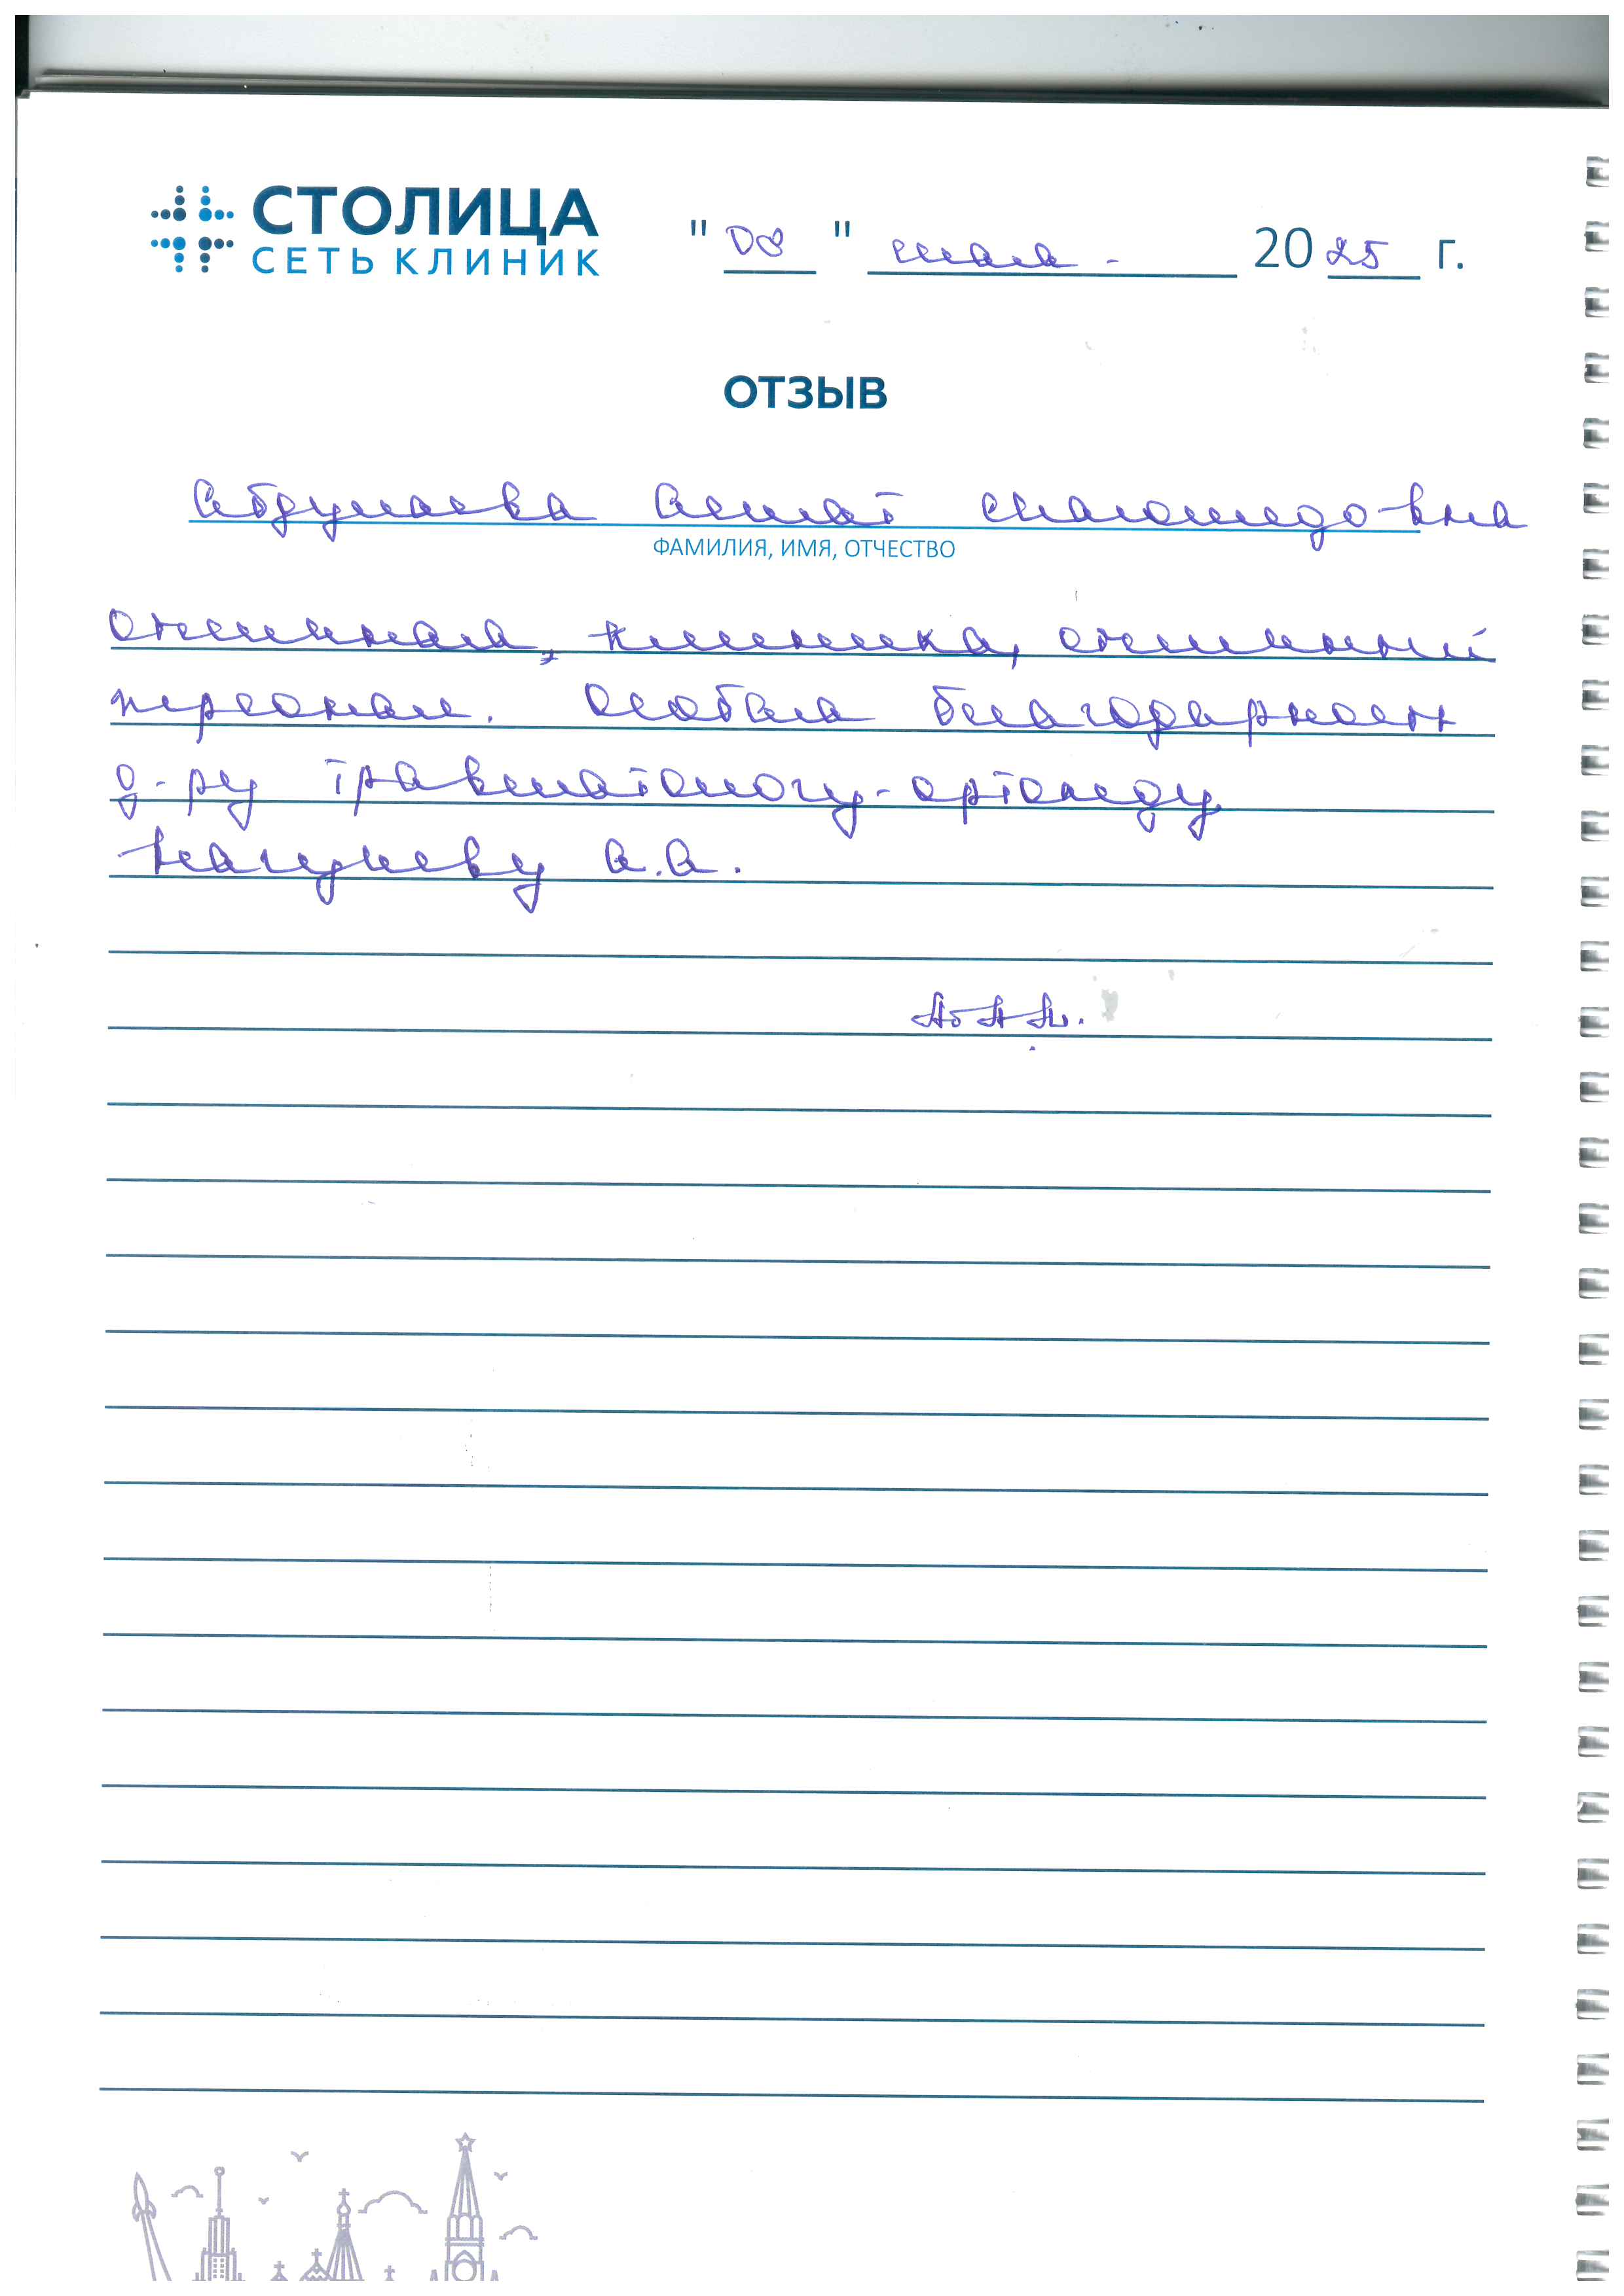 СТОЛИЦА
СЕТЬ КЛИНИК
"08" мая 2025 г.
ОТЗЫВ
Абдулаева Магомедовна
ФАМИЛИЯ, ИМЯ, ОТЧЕСТВО
отличная, клиника, отличный
персонал. Особая благодарность
д-ру травматологу-ортопеду
А.А.